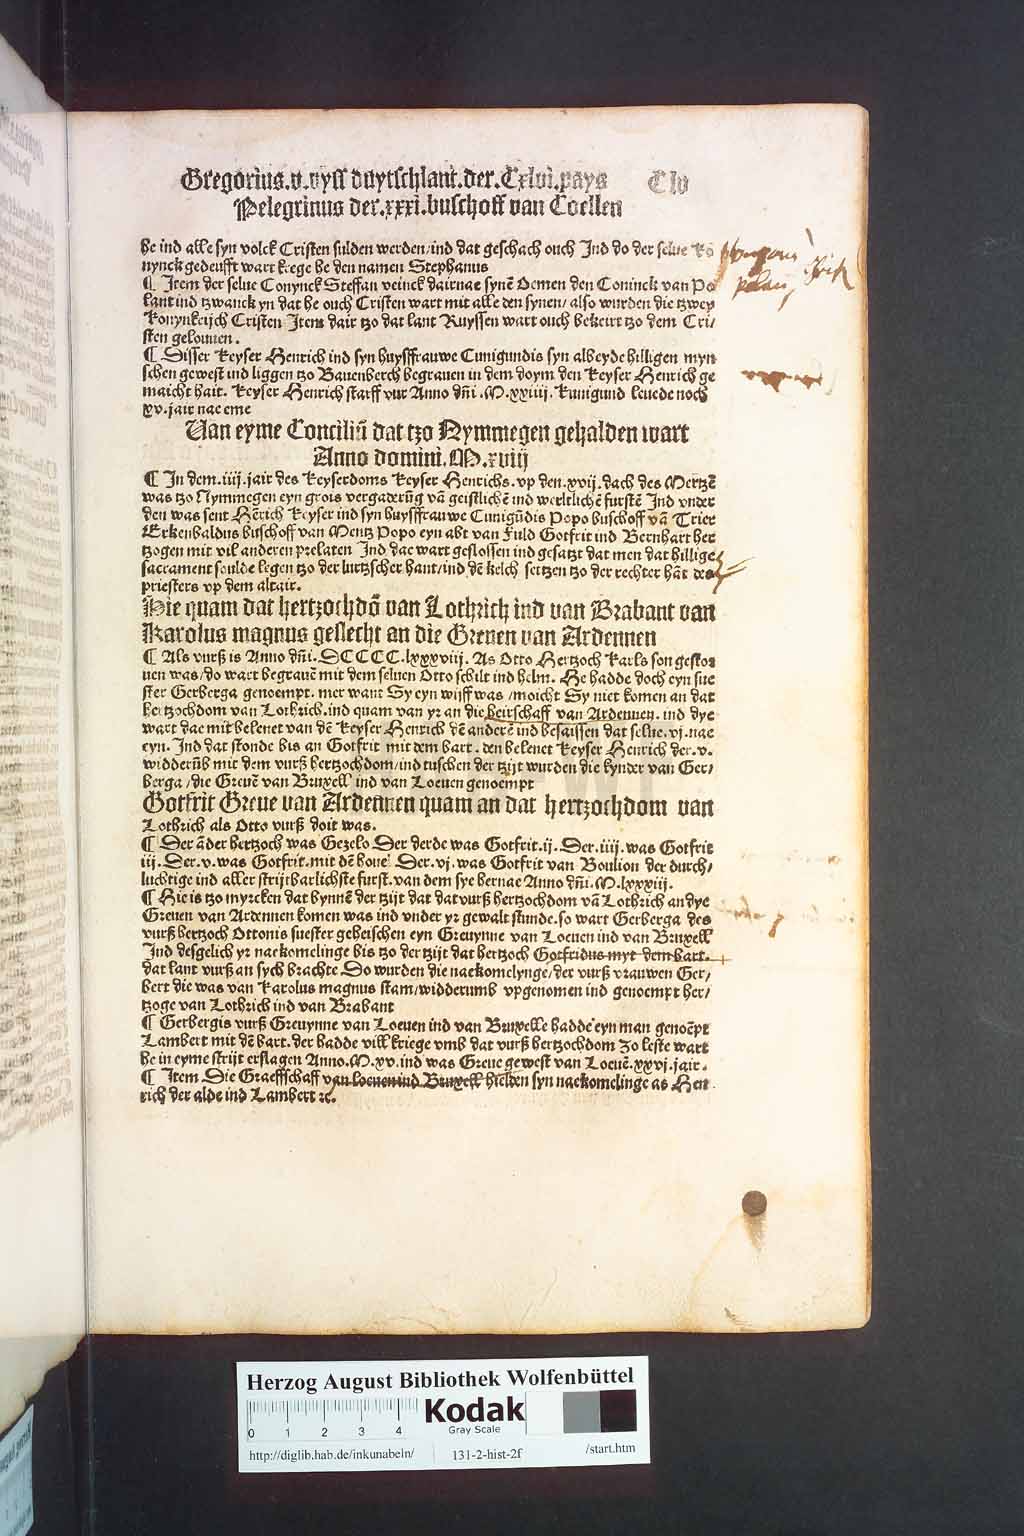 Gregorius.v.vyss duytschlant.der.Cxlvi.pays Clv
Pelegrinus der.xxxi.buschoff van Coellen
he ind alle syn volck Cristen sulden werden/ind dat geschach ouch Jnd do der selue Kö
nynck gedeufft wart krege he den namen Stephanus
¶ Jtem der selue Conynck Steffan veinck dairnae synē Oemen den Coninck van Po
lant ind tzwanck yn dat he ouch Cristen wart mit alle den synen/also wurden die tzwey
Konynkrijch Cristen Jtem dair tzo dat lant Ruyssen wart ouch bekeirt tzo dem Cri/
sten gelouuen.
¶ Disser Keyser Henrich ind syn huysffrauwe Cunigundis syn alбeyde hilligen myn
schen gewest ind liggen tzo Bauenberch begrauen in dem doym den Keyser Henrich ge
maicht hait. Keyser Henrich starff vur Anno dñi.M.xxiiij. Kunigund leuede noch
xv.jair nae eme
Uan eyme Conciliū dat tzo Nymmegen gehalden wart
Anno domini.M.xviij
¶ Jn dem.iiij.jair des Keyserdoms Keyser Henrichs.vp den.xvij.dach des Mertzē
was tzo Nymmegen eyn grois vergaderūg vā geistlichē ind werltlichē furstē Jnd vnder
den was sent Hērich Keyser ind syn huysffrauwe Cunigūdis Popo buschoff vā Trier
Erkenbaldus buschoff van Mentz Popo eyn abt van Fuld Gotfrit ind Bernhart her
tzogen mit vil anderen prelaten Jnd dae wart geslossen ind gesatzt dat men dat hillige
sacrament soulde legen tzo der lurtzscher hant/ind dē kelch setzen tzo der rechter hāt des
priesters vp dem altair.
Hie quam dat hertzochdō van Lothrich ind van Brabant van
Karolus magnus geslecht an die Greuen van Ardennen
¶ Als vurß is Anno dñi.DCCCC.lxxxviij. As Otto Hertzoch Karls son gestor
uen was/do wart begrauē mit dem seluen Otto schilt ind helm. He hadde doch eyn sue
ster Gerberga genoempt. mer want Sy eyn wijff was/moicht Sy niet komen an dat
hertzochdom van Lothrich.ind quam van yr an die heirschaff van Ardennen.ind dye
wart dae mit belenet van dē Keyser Henrich dē anderē ind besaissen dat selue.vj.nae
eyn. Jnd dat stonde bis an Gotfrit mit dem bart.den belenet Keyser Henrich der.v.
widderūb mit dem vurß hertzochdom/ind tuschen der tzijt wurden die kynder van Ger/
berga/die Greuē van Bruxell ind van Loeuen genoempt
Gotfrit Greue van Ardennen quam an dat hertzochdom van
Lothrich als Otto vurß doit was.
¶ Der āder hertzoch was Gezelo Der derde was Gotfrit.ij. Der.iiij.was Gotfrit
iij.Der.v.was Gotfrit.mit dē houe! Der.vj.was Gotfrit van Boulion der durch/
luchtige ind aller strijtbarlichste furst.van dem sye hernae Anno dñi.M.lxxxiij.
¶ Hie is tzo myrcken dat bynnē der tzijt dat dat vurß hertzochdom vā Lothrich an dye
Greuen van Ardennen komen was ind vnder yr gewalt stunde.so wart Gerberga des
vurß hertzoch Ottonis suester geheischen eyn Greuynne van Loeuen ind van Bruxell
Jnd desgelich yr naekomelinge bis tzo der tzijt dat hertzoch Gotfridus myt dem bart.
dat lant vurß an sych brachte Do wurden die naekomelynge/der vurß vrauwen Ger/
bert die was van Karolus magnus stam/widderumb vpgenomen ind genoempt her/
tzoge van Lothrich ind van Brabant
¶ Gerbergis vurß Greuynne van Loeuen ind van Bruxelle hadde eyn man genoēpt
Lambert mit dē bart.der hadde vill kriege vmb dat vurß hertzochdom Zo leste wart
he in eyme strijt erslagen Anno.M.xv.ind was Greue gewest van Loeuē.xxvj.jair.
¶ Jtem Die Graeffschaff van loeuen ind Bruxell hielden syn naekomelinge as Hen
rich der alde ind Lambert ꝛc.
Herzog August Bibliothek Wolfenbüttel
0 1 2 3 4
Kodak
Gray Scale
http://diglib.hab.de/inkunabeln/ 131-2-hist-2f /start.htm